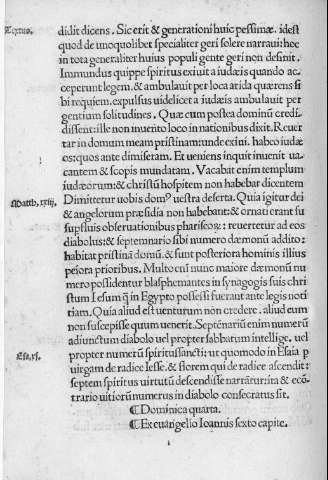 Textus.
didit dicens. Sic erit & generationi huic pessimæ. idest
quod de unoquolibet specialiter geri solere narraui: hoc
in tota generaliter huius populi gente geri non desinit.
Immundus quippe spiritus exiuit a iudæis quando ac
ceperunt legem. & ambulauit per loca arida quærens si
bi requiem. expulsus uidelicet a iudæis ambulauit per
gentium solitudines. Quæ cum postea dominū credi
dissent: ille non inuento loco in nationibus dixit. Reuer
tar in domum meam pristinam: unde exiui. habeo iudæ
os: quos ante dimiseram. Et ueniens inquit inuenit ua
cantem & scopis mundatam. Vacabat enim templum
iudæorum: & christū hospitem non habebat dicentem
Matth. xxiij.
Dimittetur uobis domꝰ uestra deserta. Quia igitur dei
& angelorum præsidia non habebant: & ornati erant su
supfluis obseruationibus phariseoꝝ: reuertetur ad eos
diabolus: & septemnario sibi numero dæmonū addito:
habitat pristinā domū. & sunt posteriora hominis illius
peiora prioribus. Multo enī nunc maiore dæmonū nu
mero possidentur blasphemantes in synagogis suis chri
stum Iesum q̄ in Egypto possessi fuerant ante legis noti
tiam. Quia aliud est uenturum non credere. aliud eum
non suscepisse quum uenerit. Septēnariū enim numerū
adiunctum diabolo uel propter sabbatum intellige. uel
Esa. xj.
propter numerū spiritussancti: ut quomodo in Esaia p
uirgam de radice Iesse. & florem qui de radice ascendit:
septem spiritus uirtutū descendisse narrātur: ita & ecō
trario uitiorū numerus in diabolo consecratus sit.
¶ Dominica quarta.
¶ Ex euangelio Ioannis sexto capite.